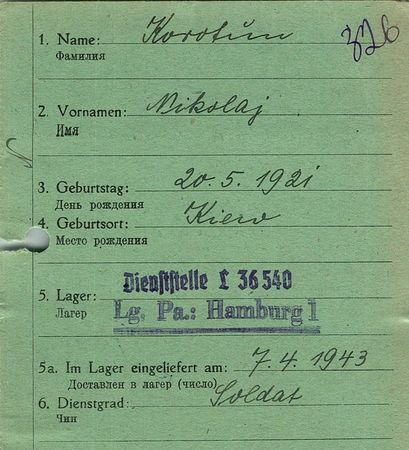 326
1. Name: Korotun
Фамилия
2. Vornamen: Nikolaj
Имя
3. Geburtstag: 20. 5. 1921
День рождения
4. Geburtsort: Kiew
Место рождения
Dienststelle L 36 540
5. Lager: Lg. Pa.: Hamburg 1
Лагер
5a. Im Lager eingeliefert am: 7. 4. 1943
Доставлен в лагер (число)
6. Dienstgrad: Soldat
Чин